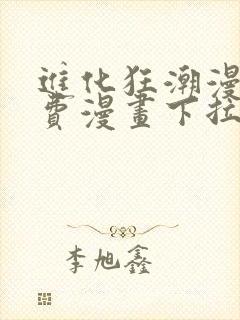 進化狂潮漫
費漫畫下拉
李旭鑫